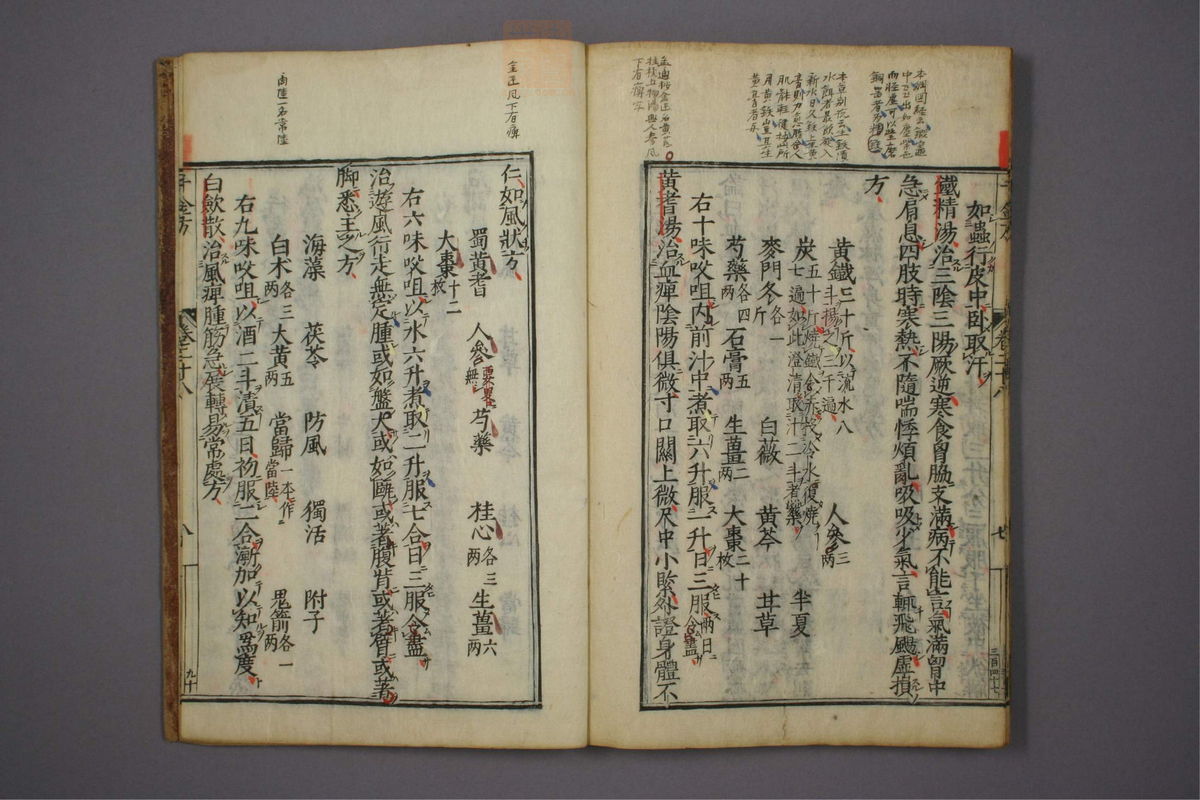 如蟲行皮中臥取汗
鐵精湯治三陰三陽厥逆寒食胷脇支滿病不能言氣滿胷中
急肩息四肢時寒熱不隨喘悸煩亂吸吸少氣言輒飛颺虛損
方
黃鐵三十斤以流水八斗揚之三千遍
炭五十斤燒鐵令赤投冷水復燒七遍如此澄清取汁二斗煮藥
人參三兩
麥門冬各一斤 白薇 黃芩 半夏
芍藥各四兩 石膏五兩 生薑二兩 大棗二十枚 甘草
右十味㕮咀內前汁中煮取六升服一升日三服兩日令盡
黃耆湯治血痺陰陽俱微寸口關上微尺中小緊外證身體不
仁如風狀方
蜀黃耆 人參要畧無 芍藥 桂心各三兩 生薑六兩
大棗十二枚
右六味㕮咀以水六升煮取二升服七合日三服令盡
治遊風行走無定腫或如盤大或如甌或著腹背或著臂或著
脚悉主之方
海藻 茯苓 防風 獨活 附子
白朮各三兩 大黃五兩 當歸一本作當陸 鬼箭各一兩
右九味㕮咀以酒二斗漬五日初服二合漸加以知爲度
白歛散治風痺腫筋急展轉易常處方
千金方
卷二十八
七
三百四十七
八
九十
商陸一名常陸